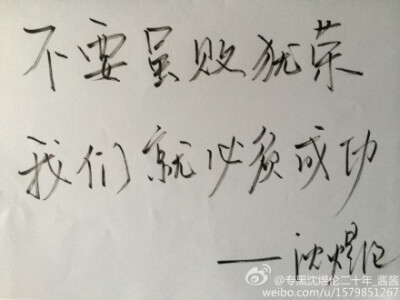 不要虽败犹荣
我们就必须成功
——沈煜伦
@专黑沈煜伦二十年_酱酱
weibo.com/u/1579851267